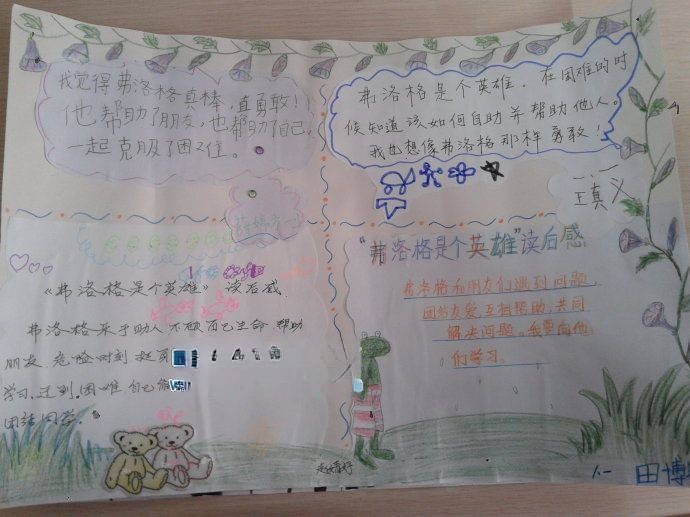 我觉得弗洛格真棒，真勇敢！
他帮助了朋友，也帮助了自己，
一起克服了困又住。
弗洛格是个英雄，在困难的时
候知道该如何自助并帮助他人。
我也想像弗洛格那样勇敢！
王真义
《弗洛格是个英雄》读后感
弗洛格乐于助人不顾自己生命帮助
朋友危险时刻挺
学习，遇到困难自己
团结同学。
"弗洛格是个英雄"读后感
弗洛格和朋友们遇到问题，
团结友爱互相帮助，共同
解决问题。我要向他
们学习。
一
田博